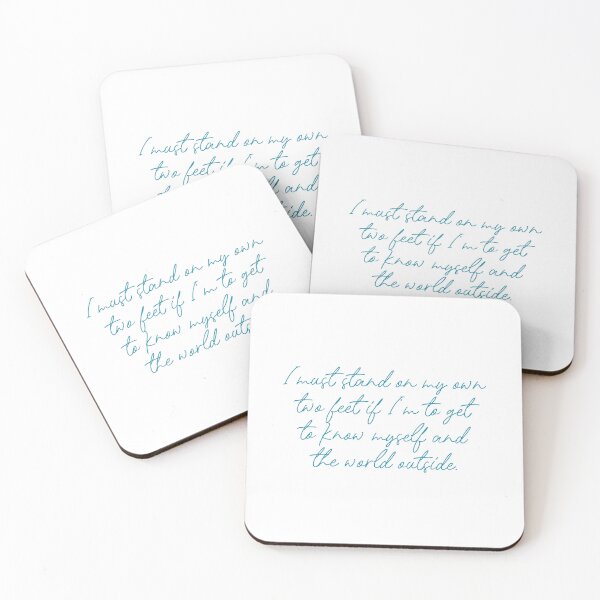 I must stand on my own
two feet if I'm to get
and
outside.
I must stand on my own
two feet if I'm to get
to know myself and
the world outside
I must stand on my own
two feet if I'm to get
to know myself and
the world
I must stand on my own
two feet if I'm to get
to know myself and
the world outside.